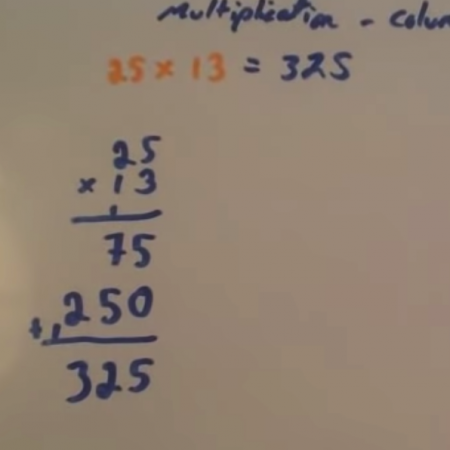 Multiplication - colum
25 x 13 = 325
25
x 13
1
75
+1250
325